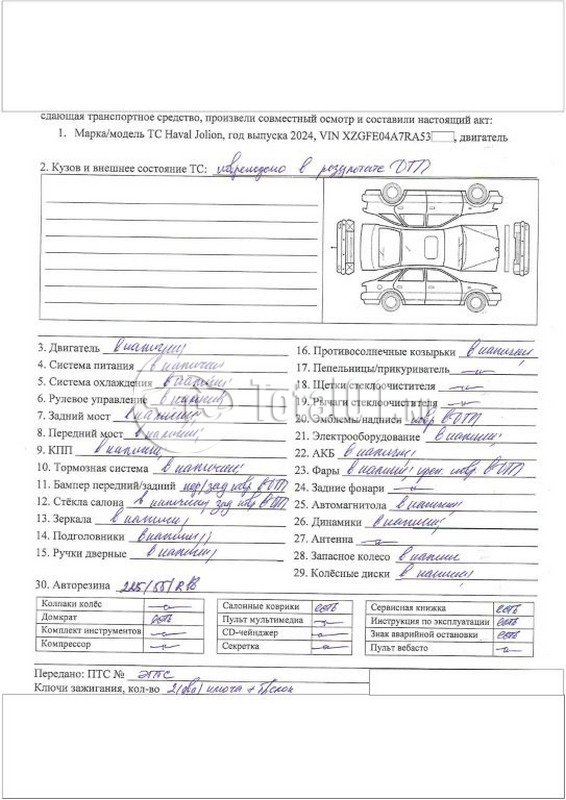 сдающая транспортное средство, произвели совместный осмотр и составили настоящий акт:
1. Марка/модель ТС Haval Jolion, год выпуска 2024, VIN XZGFE04A7RA53, двигатель
2. Кузов и внешнее состояние ТС: повреждено в результате ДТП
3. Двигатель в наличии
4. Система питания в наличии
5. Система охлаждения в наличии
6. Рулевое управление в наличии
7. Задний мост в наличии
8. Передний мост в наличии
9. КПП в наличии
10. Тормозная система в наличии
11. Бампер передний/задний пер/зад повр в ДТП
12. Стёкла салона в наличии, зад повр в ДТП
13. Зеркала в наличии
14. Подголовники в наличии
15. Ручки дверные в наличии
16. Противосолнечные козырьки в наличии
17. Пепельницы/прикуриватель
18. Щетки стеклоочистителя
19. Рычаги стеклоочистителя
20. Эмблемы/надписи повр в ДТП
21. Электрооборудование в наличии
22. АКБ в наличии
23. Фары в наличии, повр в ДТП
24. Задние фонари
25. Автомагнитола в наличии
26. Динамики в наличии
27. Антенна
28. Запасное колесо в наличии
29. Колёсные диски в наличии
30. Авторезина 225/55/R18
Колпаки колёс
Домкрат есть
Комплект инструментов
Компрессор
Салонные коврики есть
Пульт мультимедиа
CD-чейнджер
Секретка
Сервисная книжка есть
Инструкция по эксплуатации есть
Знак аварийной остановки есть
Пульт вебасто
Передано: ПТС № ЭПТС
Ключи зажигания, кол-во 2(два) ключа + брелок
Total01.ru